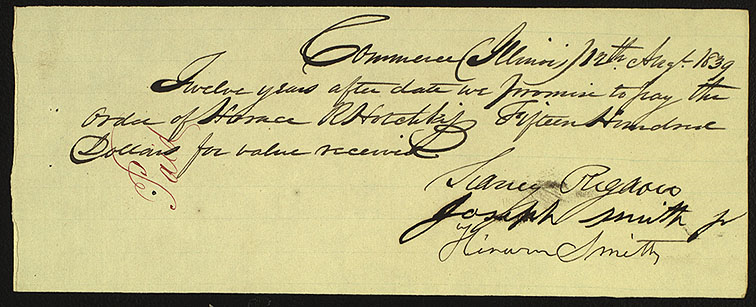 Commerce (Illinois) 12th Augt 1839
Twelve years after date we promise to pay the
order of Horace R Hotchkiss Fifteen Hundred
Dollars for value received
Paid
Sidney Rigdon
Joseph Smith Jr
Hiram Smith